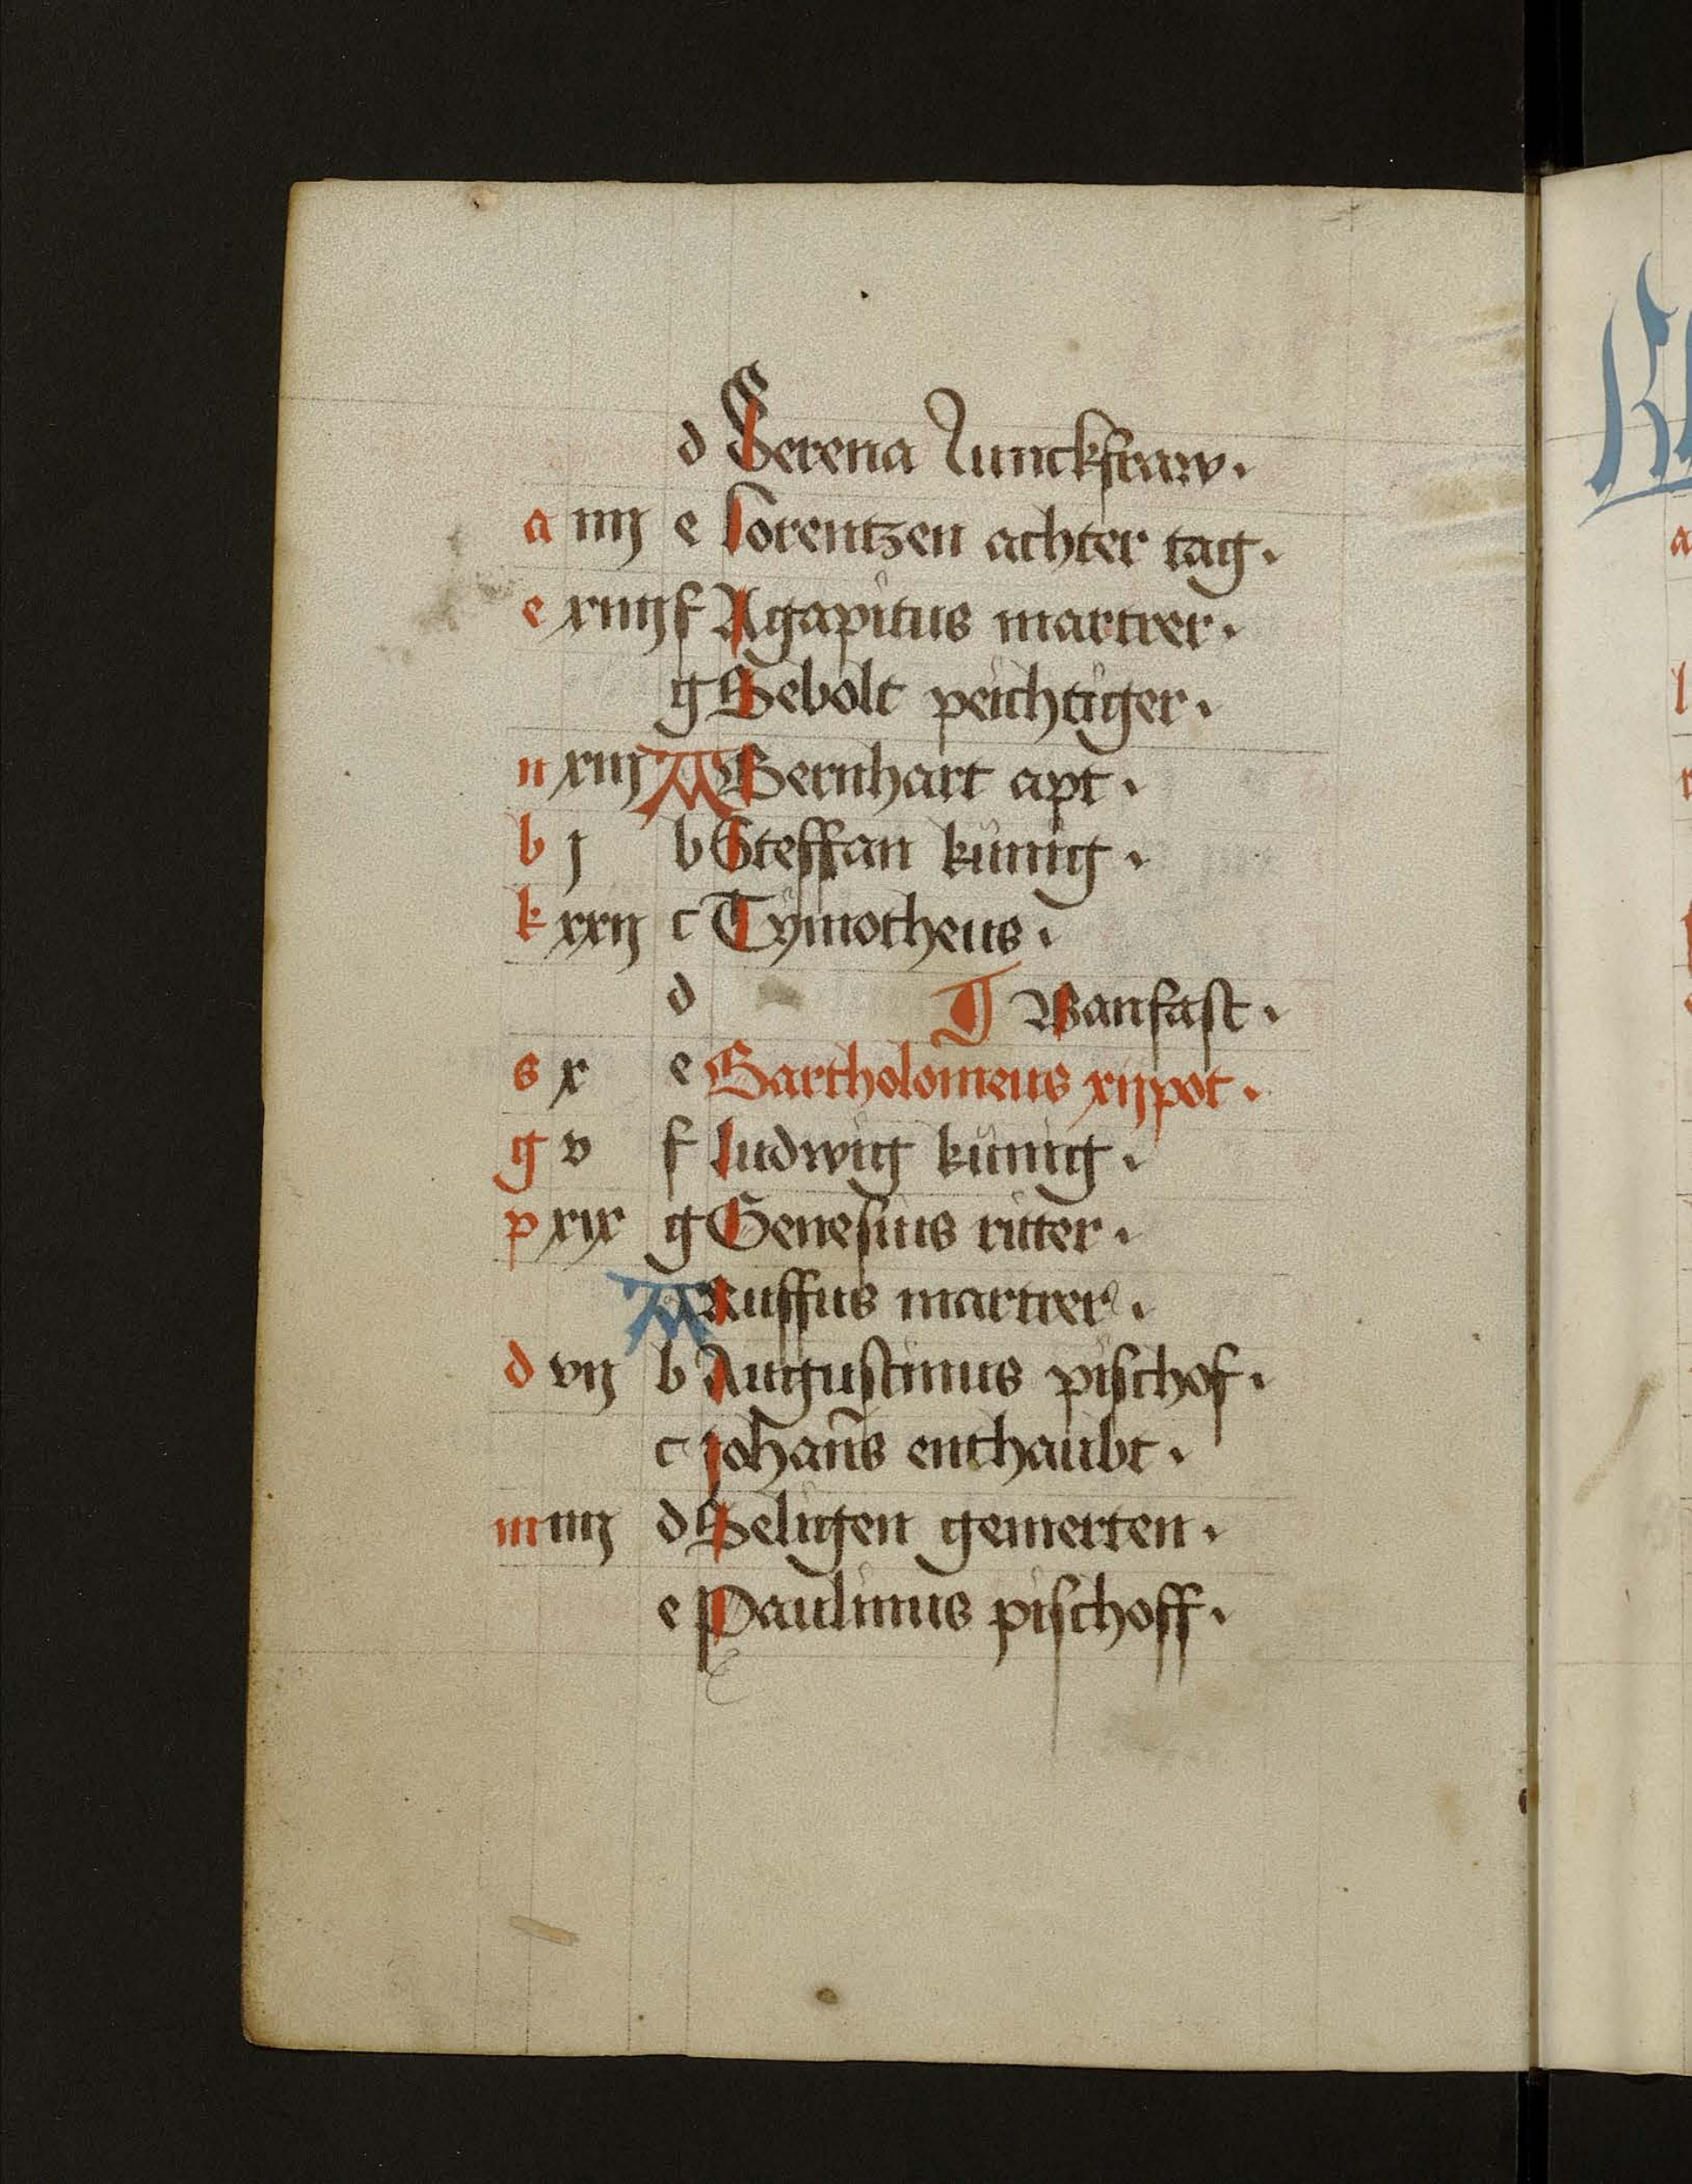 d Serena Junckfraw.
a iiij e Lorentzen achter tag.
e xiiij f Agapitus martrer.
g Sebolt peichtiger.
n xiij A Bernhart apt.
b j b Steffan künig.
k xxij c Tymotheus.
d Banfast.
s x e Bartholomeus xijpot.
g v f ludwig künig.
p xix g Genesius ritter.
A Ruffus martrer.
d vij b Augustinus pischof.
c johan̄s enthaubt.
m iiij d Seligen gemerten.
e Paulinus pischoff.